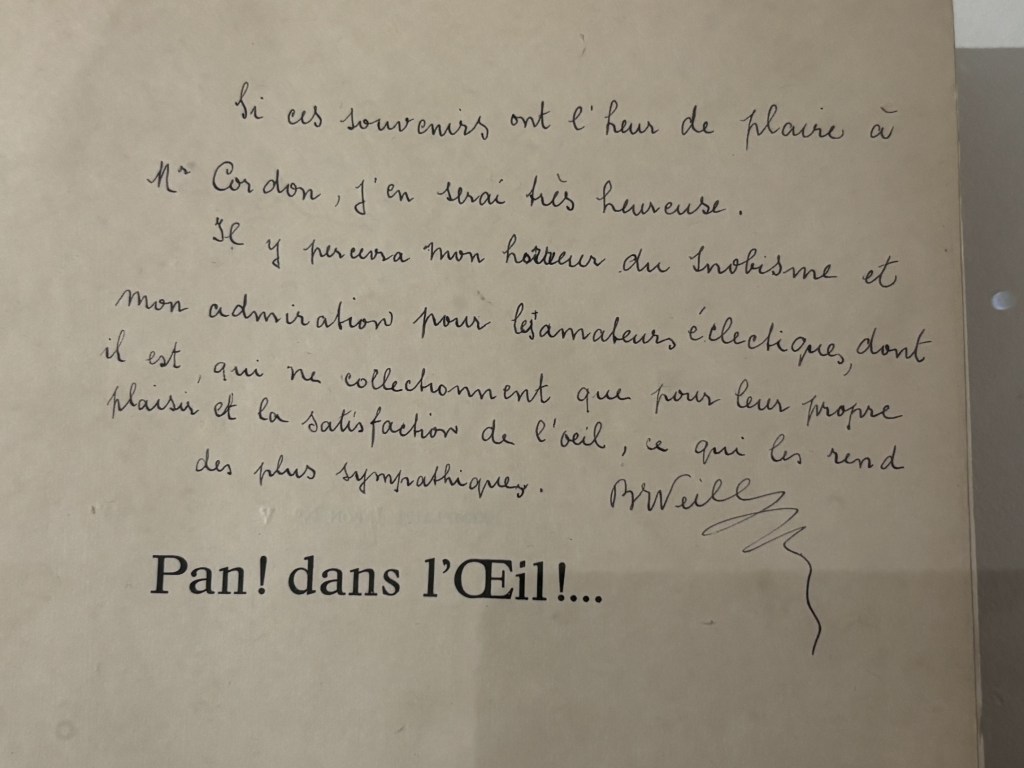 Si ces souvenirs ont l'heur de plaire à
Mr Cordon, j'en serai très heureuse.
Il y percevra mon horreur du snobisme et
mon admiration pour les amateurs éclectiques, dont
il est, qui ne collectionnent que pour leur propre
plaisir et la satisfaction de l'oeil, ce qui les rend
des plus sympathiques.
BWeill
Pan! dans l'Œil!...